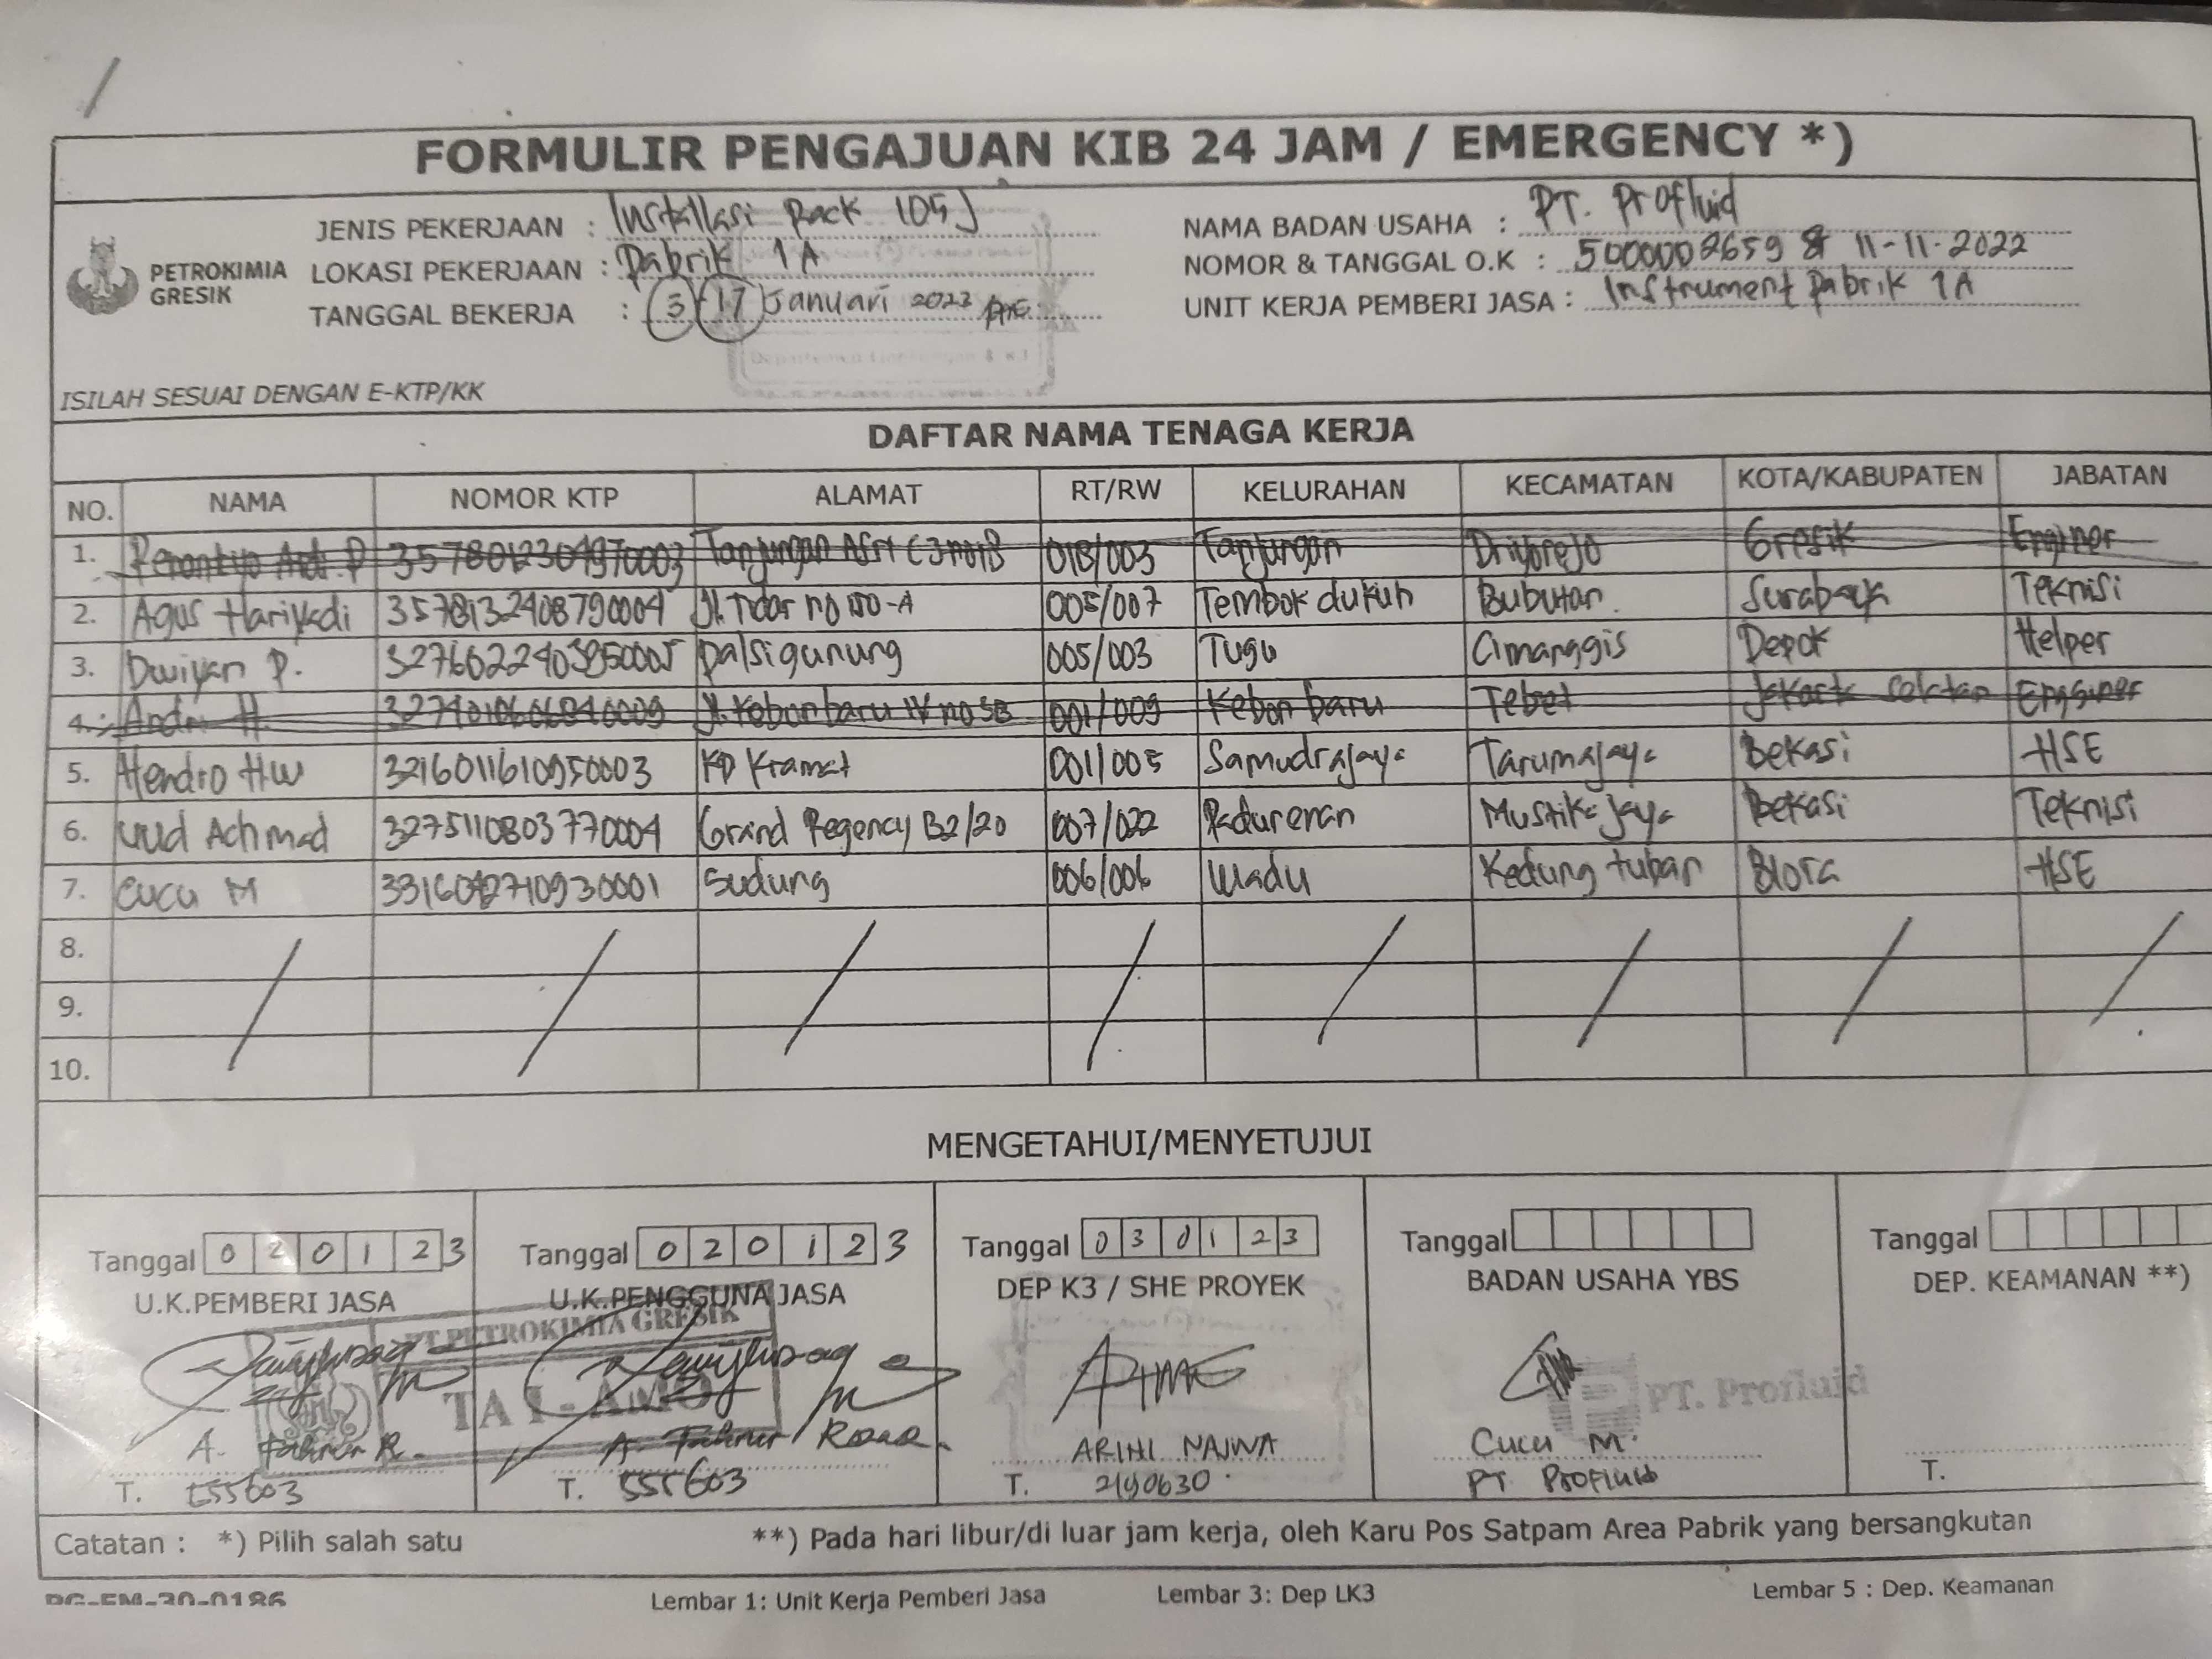 FORMULIR PENGAJUAN KIB 24 JAM / EMERGENCY *)
PETROKIMIA GRESIK
JENIS PEKERJAAN : Installasi Rack 105J
LOKASI PEKERJAAN : Pabrik 1A
TANGGAL BEKERJA : 3 - 17 Januari 2023
NAMA BADAN USAHA : PT. Profluid
NOMOR & TANGGAL O.K : 5000002659 & 11-11-2022
UNIT KERJA PEMBERI JASA : Instrument Pabrik 1A
ISILAH SESUAI DENGAN E-KTP/KK
DAFTAR NAMA TENAGA KERJA
NO. NAMA NOMOR KTP ALAMAT RT/RW KELURAHAN KECAMATAN KOTA/KABUPATEN JABATAN
1. 3578012304970003 Tanjungan 018/003 Tanjungan Driyorejo Gresik Enginer
2. Agus Hariyadi 3578132408790004 Jl. Tidar no 150-A 005/007 Tembok dukuh Bubutan Surabaya Teknisi
3. Dwiyan P. Palsigunung 005/003 Tugu Cimanggis Depok Helper
4. Andri H. 3274010606840009 Jl. Kebon baru IV no 5B 001/009 Kebon baru Tebet Jakarta selatan Engginer
5. Hendro HW 3216011610950003 KP Kramat 001/005 Samudrajaya Tarumajaya Bekasi HSE
6. Uud Achmad 3275110803770004 Grand Regency B2/20 007/022 Padurenan Mustika Jaya Bekasi Teknisi
7. Cucu M Sudung 006/006 Wadu Kedung tuban Blora HSE
8.
9.
10.
MENGETAHUI/MENYETUJUI
Tanggal 020123
U.K.PEMBERI JASA
A. Fahrur R.
T. 555603
Tanggal 020123
U.K.PENGGUNA JASA
PT PETROKIMIA GRESIK
TA I - AMO
A. Fahrur
T. 555603
Tanggal 030123
DEP K3 / SHE PROYEK
ARINI NAJWA
T. 2190630
Tanggal
BADAN USAHA YBS
PT. Profluid
Cucu M.
PT Profluid
Tanggal
DEP. KEAMANAN **)
T.
Catatan : *) Pilih salah satu
**) Pada hari libur/di luar jam kerja, oleh Karu Pos Satpam Area Pabrik yang bersangkutan
PG-FM-30-0186
Lembar 1: Unit Kerja Pemberi Jasa
Lembar 3: Dep LK3
Lembar 5 : Dep. Keamanan